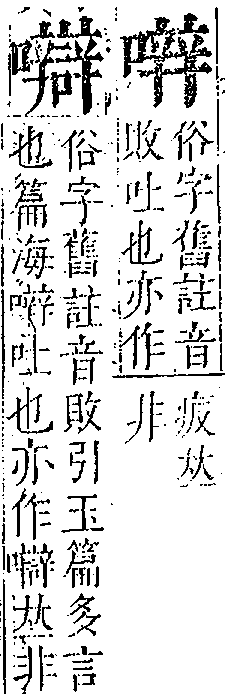 俗字舊註音
敗吐也亦作
疲𠀤
非
俗字舊註音敗引玉篇多言
也篇海吐也亦作𠀤非